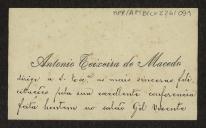 Antonio Teixeira de Macedo
dirige a V. Exª as mais sinceras feli-
citações pela sua excellente conferencia
feita hontem no salão Gil Vicente